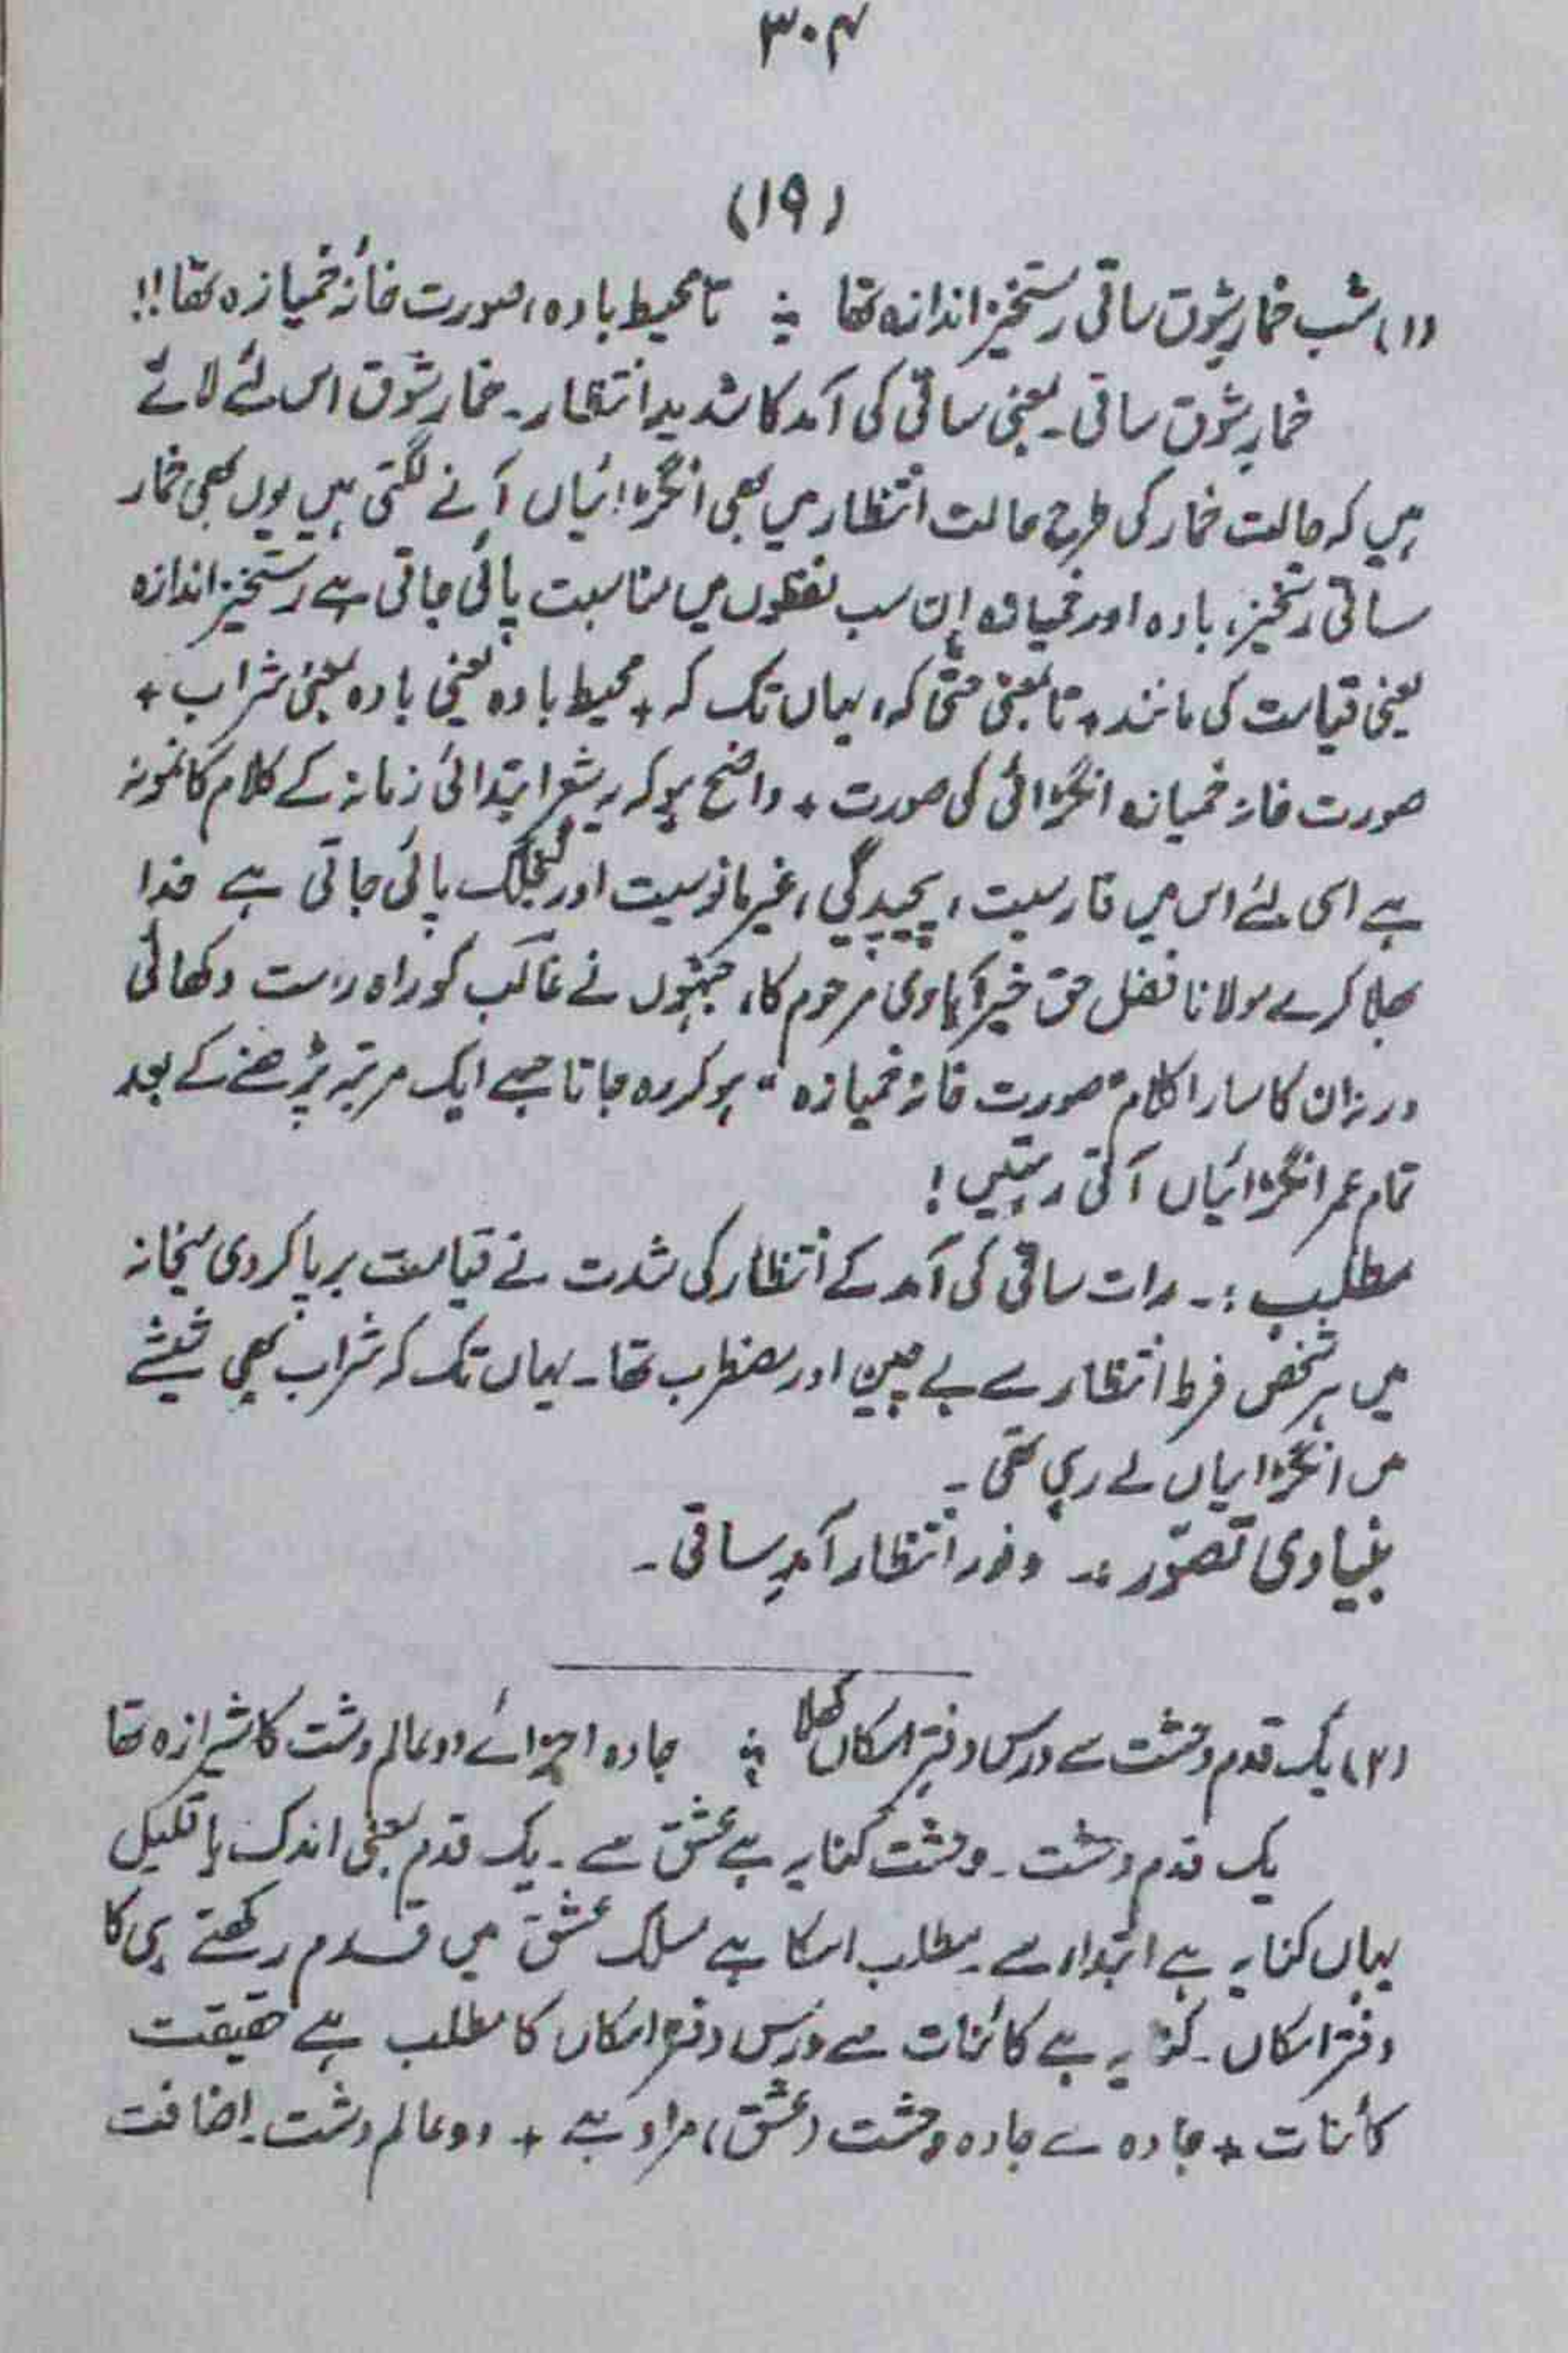 ۳۰۴
(۱۹)
(۱) شب خمارِ شوقِ ساقی رستخیز اندازہ تھا ؞ تا محیطِ بادہ، صورت خانۂ خمیازہ تھا!!
خمارِ شوقِ ساقی۔ یعنی ساقی کی آمد کا شدید انتظار۔ خمارِ شوق اس لئے لائے
ہیں کہ حالت خمار کی طرح حالت انتظار میں بھی انگڑائیاں آنے لگتی ہیں یوں بھی خمار
ساقی رستخیز، بادہ اور خمیازہ اِن سب لفظوں میں مناسبت پائی جاتی ہے رستخیز اندازہ
یعنی قیامت کی مانند + تا بمعنی حتّٰی کہ، یہاں تک کہ + محیط بادہ یعنی بادہ بمعنی شراب +
صورت خانہ خمیازہ انگڑائی کی صورت + واضح ہو کہ یہ شعر ابتدائی زمانہ کے کلام کا نمونہ
ہے اسی لئے اس میں فارسیت، پیچیدگی، غیر مانوسیت اور گنجلک پائی جاتی ہے خدا
بھلا کرے مولانا فضل حق خیرآبادی مرحوم کا، جنہوں نے غالب کو راہ راست دکھائی
ورنہ ان کا سارا کلام "صورت خانۂ خمیازہ" ہو کر رہ جاتا جسے ایک مرتبہ پڑھنے کے بعد
تمام عمر انگڑائیاں آتی رہتیں!
مطلب :۔ رات ساقی کی آمد کے انتظار کی شدت نے قیامت برپا کر دی میخانہ
میں ہر شخص فرط انتظار سے بے چین اور مضطرب تھا۔ یہاں تک کہ شراب بھی شیشے
میں انگڑایاں لے رہی تھی۔
بنیادی تصوّر :۔ وفور انتظار آمدِ ساقی۔
(۲) یک قدم وحشت سے درس دفتر امکاں کھلا ؞ جادہ اجزائے دو عالم دشت کا شیرازہ تھا
یک قدم وحشت۔ وحشت کنایہ ہے عشق سے۔ یک قدم بمعنی اندک یا قلیل
یہاں کنایہ ہے ابتداء سے۔ مطلب اسکا ہے مسلک عشق میں قدم رکھتے ہی کا
دفتر امکاں۔ کنایہ ہے کائنات سے درس دفتر امکاں کا مطلب ہے حقیقت
کائنات + جادہ سے جادہ وحشت (عشق) مراد ہے + دو عالم دشت۔ اضافت